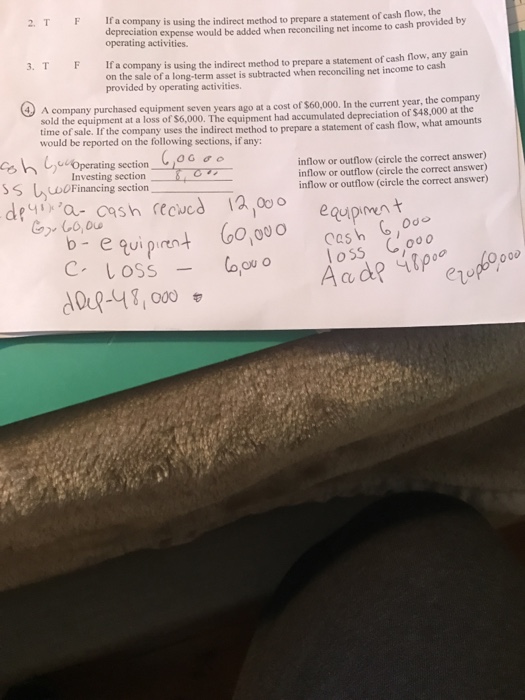 2. T F If a company is using the indirect method to prepare a statement of cash flow, the
depreciation expense would be added when reconciling net income to cash provided by
operating activities.
3. T F If a company is using the indirect method to prepare a statement of cash flow, any gain
on the sale of a long-term asset is subtracted when reconciling net income to cash
provided by operating activities.
4. A company purchased equipment seven years ago at a cost of $60,000. In the current year, the company
sold the equipment at a loss of $6,000. The equipment had accumulated depreciation of $48,000 at the
time of sale. If the company uses the indirect method to prepare a statement of cash flow, what amounts
would be reported on the following sections, if any:
Operating section 6,000 inflow or outflow (circle the correct answer)
Investing section inflow or outflow (circle the correct answer)
Financing section inflow or outflow (circle the correct answer)
a- cash 12,000 equipment
60,000 cash 6,000
b- 60,000 loss 6,000
c. Loss - 6,000 48,000 60,000
48,000